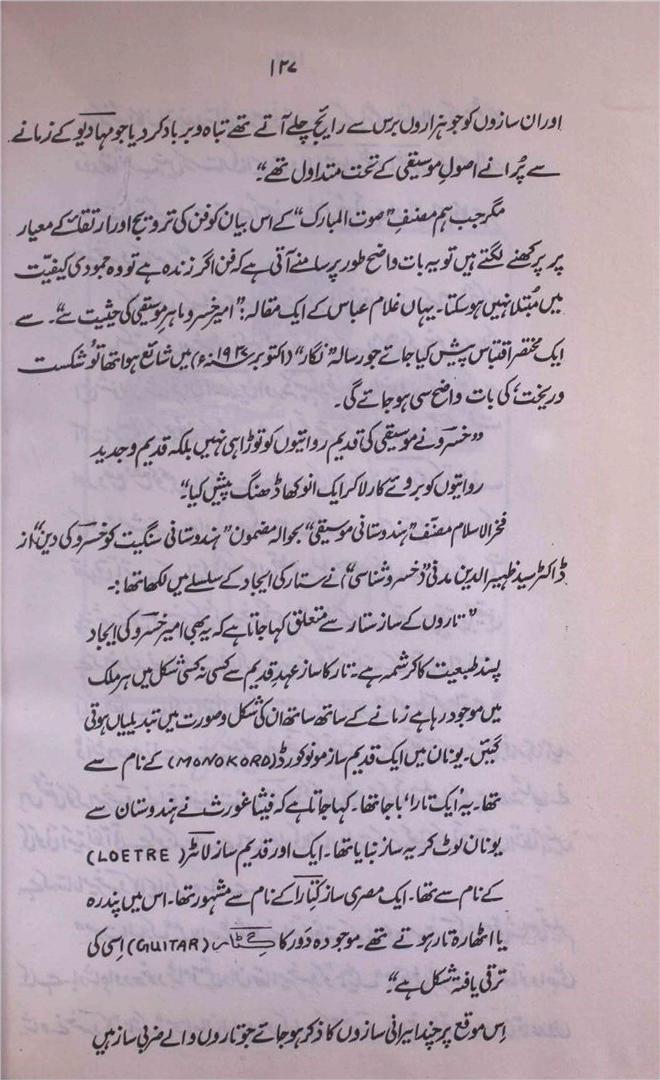 ۱۲۷
اور ان سازوں کو جو ہزاروں برس سے رائج چلے آتے تھے تباہ و برباد کر دیا جو مہادیو کے زمانے
سے پُرانے اصولِ موسیقی کے تحت متداول تھے“
مگر جب ہم مصنفِ ”صوت المبارک“ کے اس بیان کو فن کی ترویج اور ارتقاء کے معیار
پر پرکھنے لگتے ہیں تو یہ بات واضح طور پر سامنے آتی ہے کہ فن اگر زندہ ہے تو وہ جمودی کیفیّت
میں مُبتلا نہیں ہو سکتا۔ یہاں غلام عباس کے ایک مقالہ: ”امیر خسرو ماہرِ موسیقی کی حیثیت سے“۔ سے
ایک مختصر اقتباس پیش کیا جائے جو رسالہ ”نگار“ (اکتوبر ۱۹۲۷ء) میں شائع ہوا تھا تو ’شکست
و ریخت‘ کی بات واضح سی ہو جائے گی۔
”خسرو نے موسیقی کی قدیم روایتوں کو توڑا ہی نہیں بلکہ قدیم و جدید
روایتوں کو بروئے کار لا کر ایک انوکھا ڈھنگ پیش کیا“
فخر الاسلام مصنّف ”ہندوستانی موسیقی“ بحوالہ مضمون ”ہندوستانی سنگیت کو خسرو کی دین“ از
ڈاکٹر سید ظہیر الدین مدنی (”خسرو شناسی“) نے ستار کی ایجاد کے سلسلے میں لکھا تھا:۔
”تاروں کے ساز ستار سے متعلق کہا جاتا ہے کہ یہ بھی امیر خسرو کی ایجاد
پسند طبیعت کا کرشمہ ہے۔ تار کا ساز عہدِ قدیم سے کسی نہ کسی شکل میں ہر ملک
میں موجود رہا ہے زمانے کے ساتھ ساتھ ان کی شکل و صورت میں تبدیلیاں ہوتی
گئیں۔ یونان میں ایک قدیم ساز مونوکورڈ (MONOKORD) کے نام سے
تھا۔ یہ ’ایک تارا‘ باجا تھا۔ کہا جاتا ہے کہ فیثا غورث نے ہندوستان سے
یونان لوٹ کر یہ ساز بنایا تھا۔ ایک اور قدیم ساز لائٹر (LOETRE)
کے نام سے تھا۔ ایک مصری ساز کتارا کے نام سے مشہور تھا۔ اس میں پندرہ
یا اٹھارہ تار ہوتے تھے۔ موجودہ دَور کا گٹار (GUITAR) اِسی کی
ترقی یافتہ شکل ہے“۔
اِس موقع پر چند ایرانی سازوں کا ذکر ہو جائے جو تاروں والے ضربی ساز ہیں